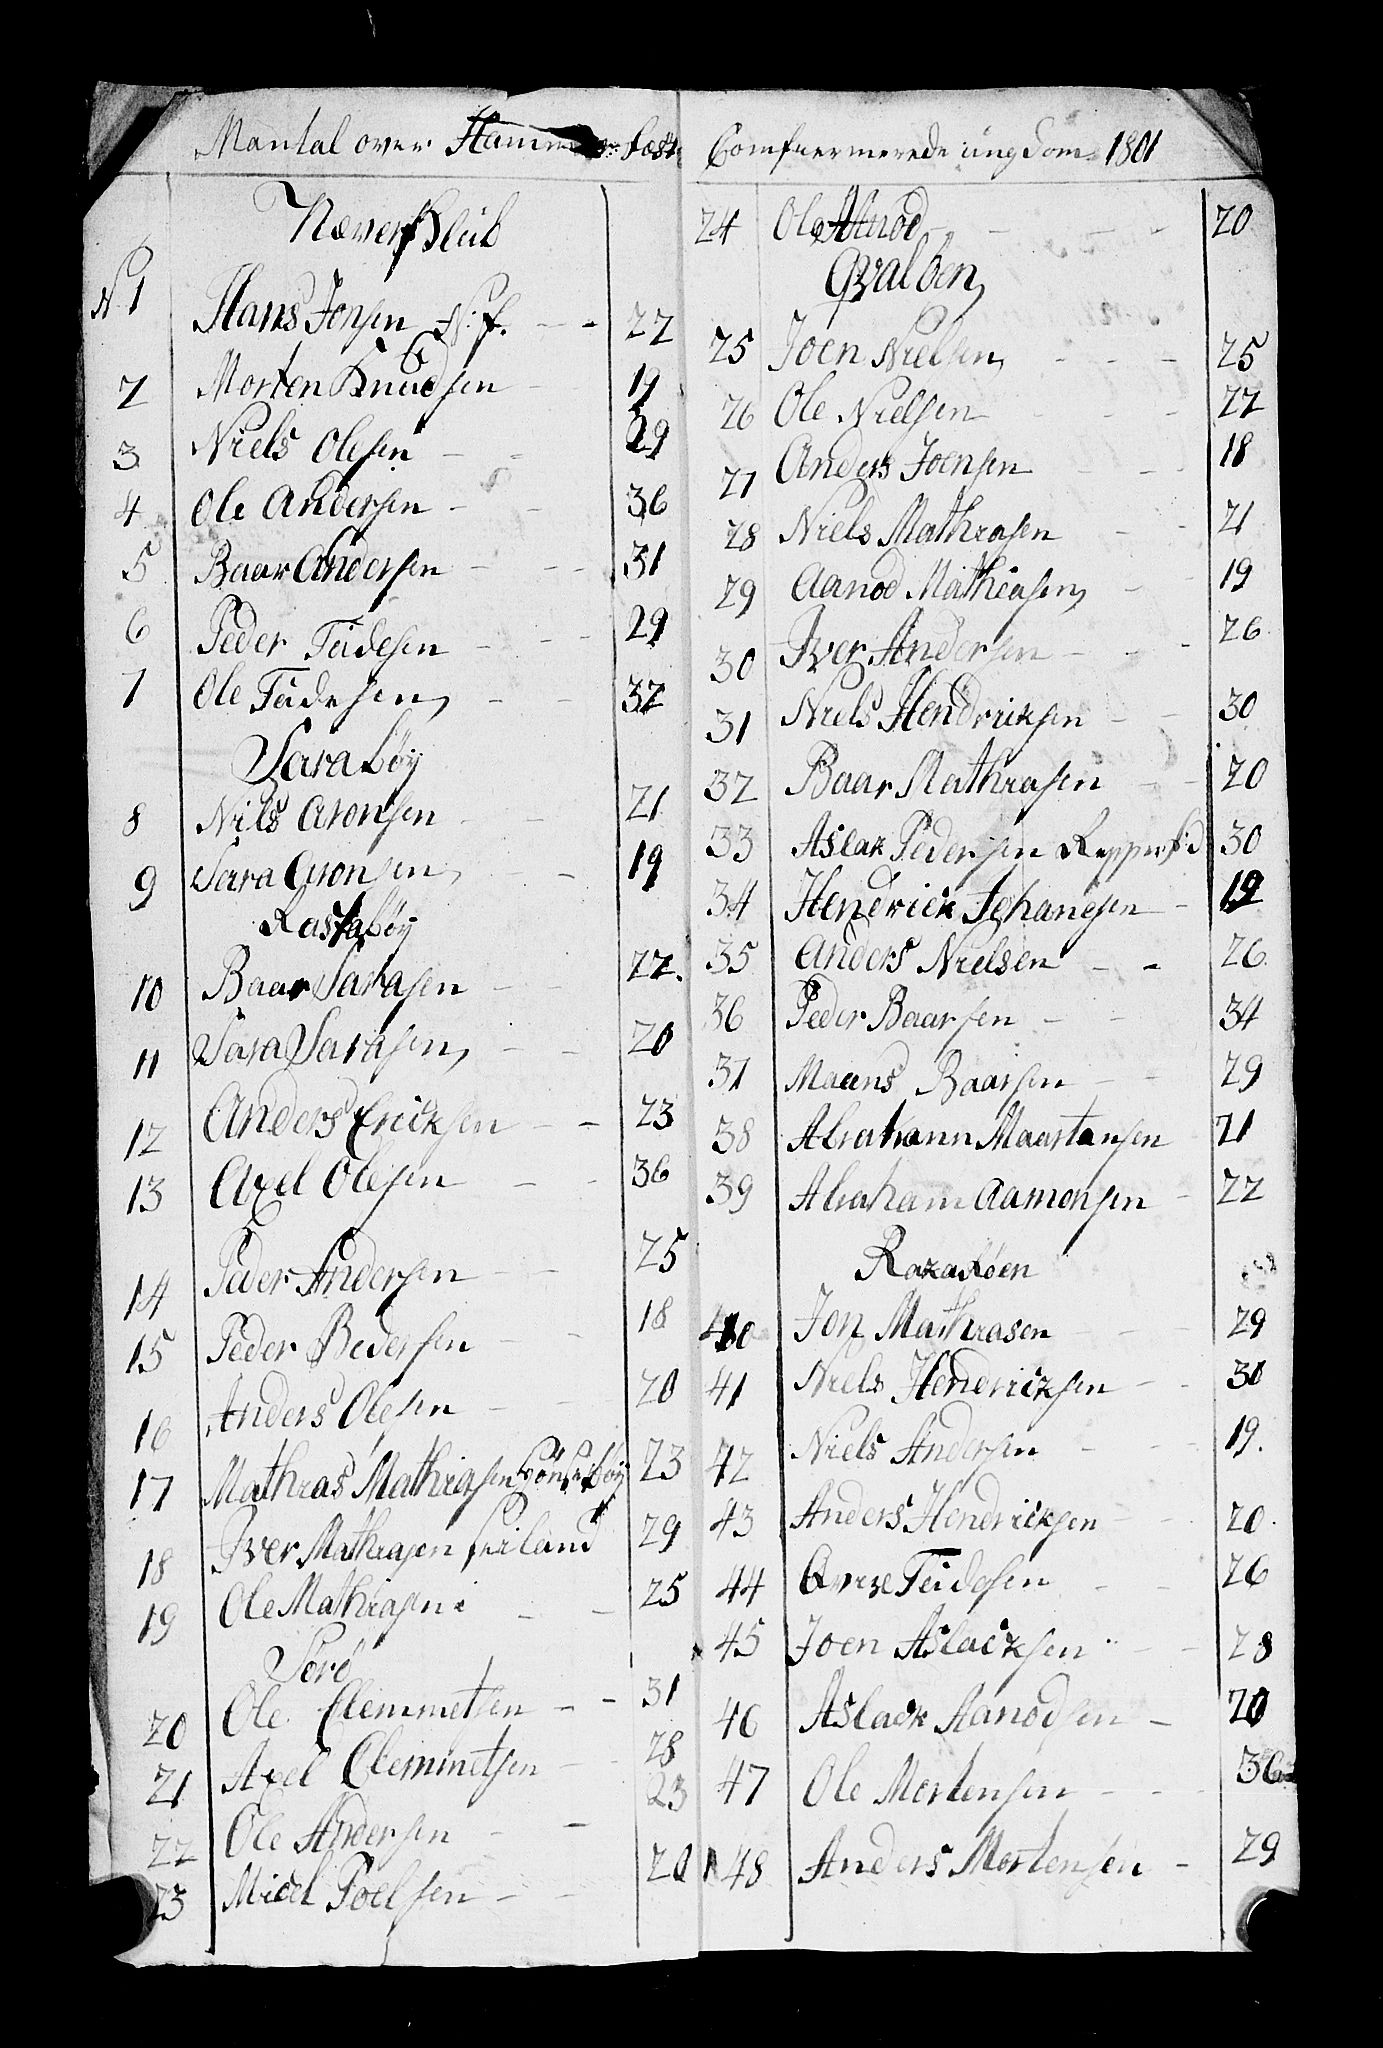 Mantal over Hammerfest Comfuermerede ungdom 1801
Næverfklub
No 1 Hans Jonsen N.f. 22
2 Morten Knudsen 19
3 Niels Olesen 29
4 Ole Andersen 36
5 Baar Andersen 31
6 Peder Feidesen 29
7 Ole Feidesen 32
Saraböÿ
8 Nils Aronsen 21
9 Sara Aronsen 19
Kastaböÿ
10 Baar Sarasen 22.
11 Sara Sarasen 20
12 Anders Ericksen 23
13 Axel Olesen 36
14 Peder Andersen 25
15 Peder Pedersen 18
16 Anders Olesen 20
17 Mathias Mathiasen 23
18 Iver Mathiasen Seiland 29
19 Ole Mathiasen 25
Sörö
20 Ole Clemmetsen 31
21 Axel Clemmetsen 28
22 Ole Andersen 23
23 Mickel Poelsen 20
24 Ole Anod 20
Qvalöen
25 Joen Nielsen 25
26 Ole Nielsen 22
27 Anders Joensen 18
28 Niels Mathiasen 21
29 Aanod Mathiasen 19
30 Iver Andersen 26
31 Niels Hendricksen 30
32 Baar Mathiasen 20
33 Aslak Pedersen Repperfd 30
34 Hendrick Johansen 19
35 Anders Nielsen 26.
36 Peder Baarsen 34
37 Maans Baarsen 29
38 Abraham Maartensen 21
39 Abraham Aamonsen 22
40 Jon Mathiasen 29
41 Niels Hendricksen 30
42 Niels Andersen 19.
43 Anders Hendricksen 20.
44 Feidesen 26
45 Joen Aslacksen 28
46 Aslack Aanodsen 20
47 Ole Mortensen 36
48 Anders Mortensen 29